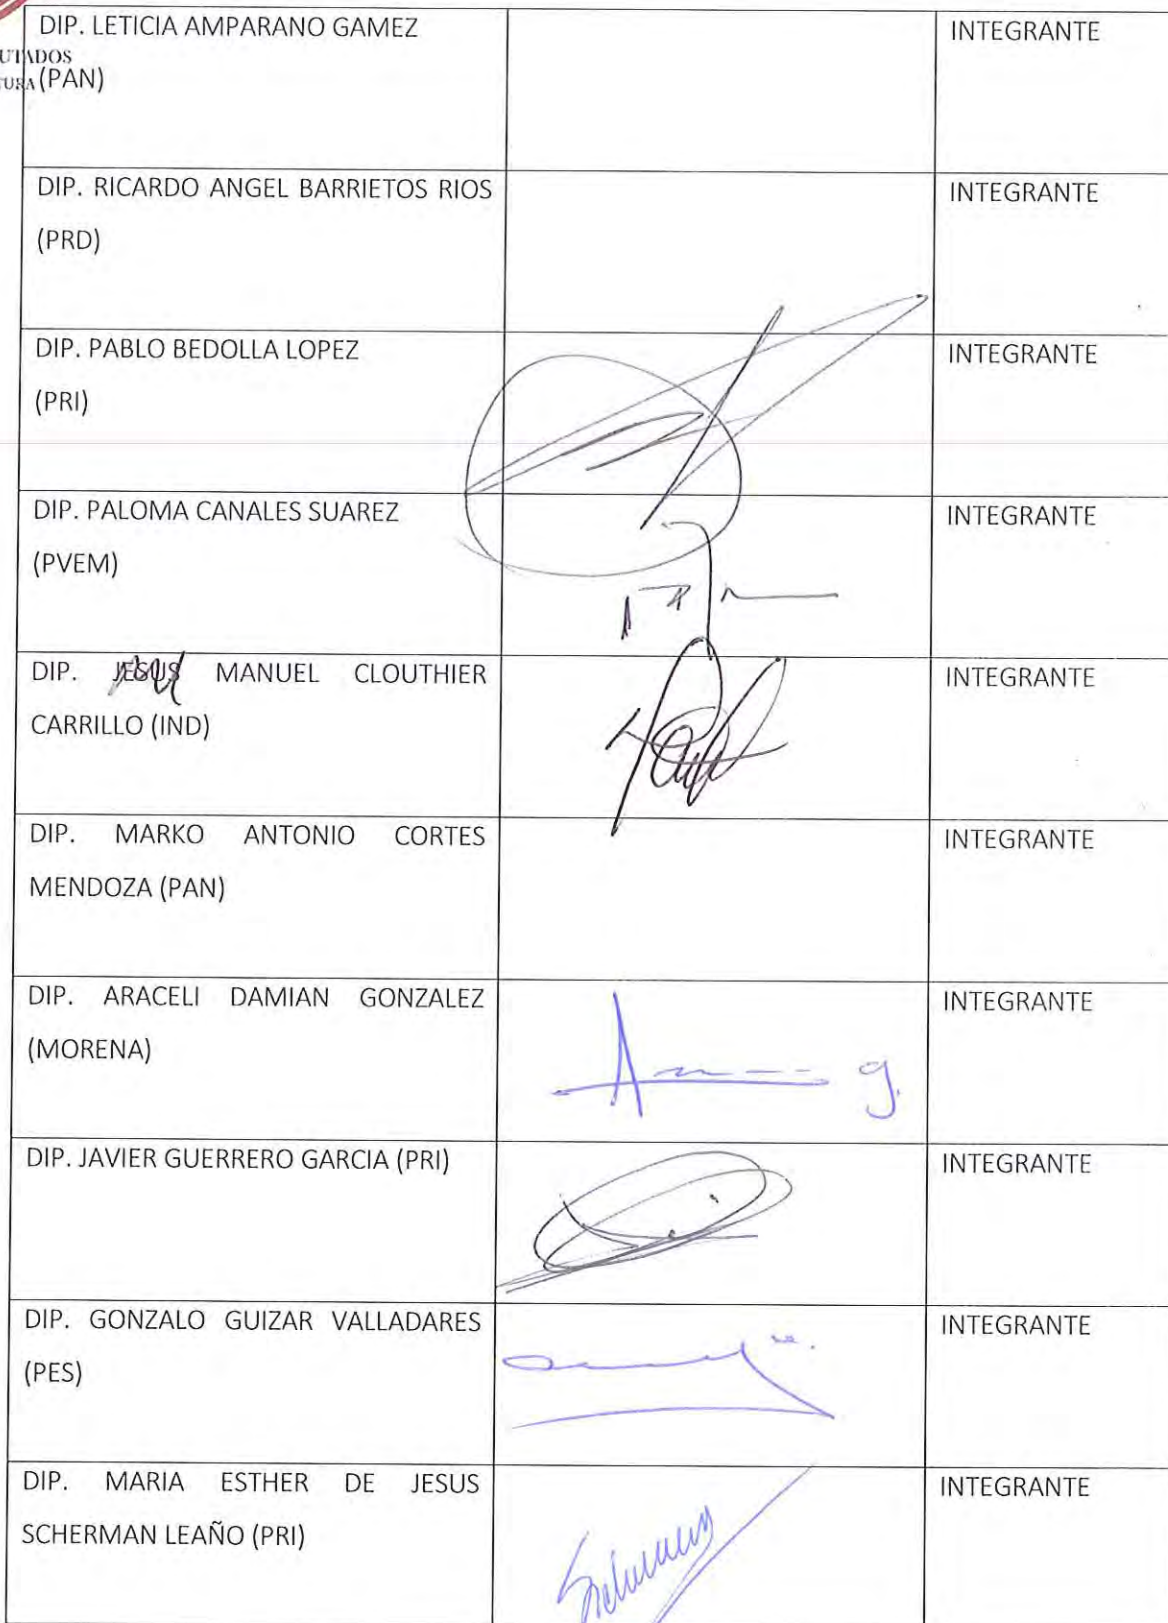 DIP. LETICIA AMPARANO GAMEZ
(PAN)
INTEGRANTE
DIP. RICARDO ANGEL BARRIETOS RIOS
(PRD)
INTEGRANTE
DIP. PABLO BEDOLLA LOPEZ
(PRI)
INTEGRANTE
DIP. PALOMA CANALES SUAREZ
(PVEM)
INTEGRANTE
DIP. JESUS MANUEL CLOUTHIER
CARRILLO (IND)
INTEGRANTE
DIP. MARKO ANTONIO CORTES
MENDOZA (PAN)
INTEGRANTE
DIP. ARACELI DAMIAN GONZALEZ
(MORENA)
INTEGRANTE
DIP. JAVIER GUERRERO GARCIA (PRI)
INTEGRANTE
DIP. GONZALO GUIZAR VALLADARES
(PES)
INTEGRANTE
DIP. MARIA ESTHER DE JESUS
SCHERMAN LEAÑO (PRI)
INTEGRANTE